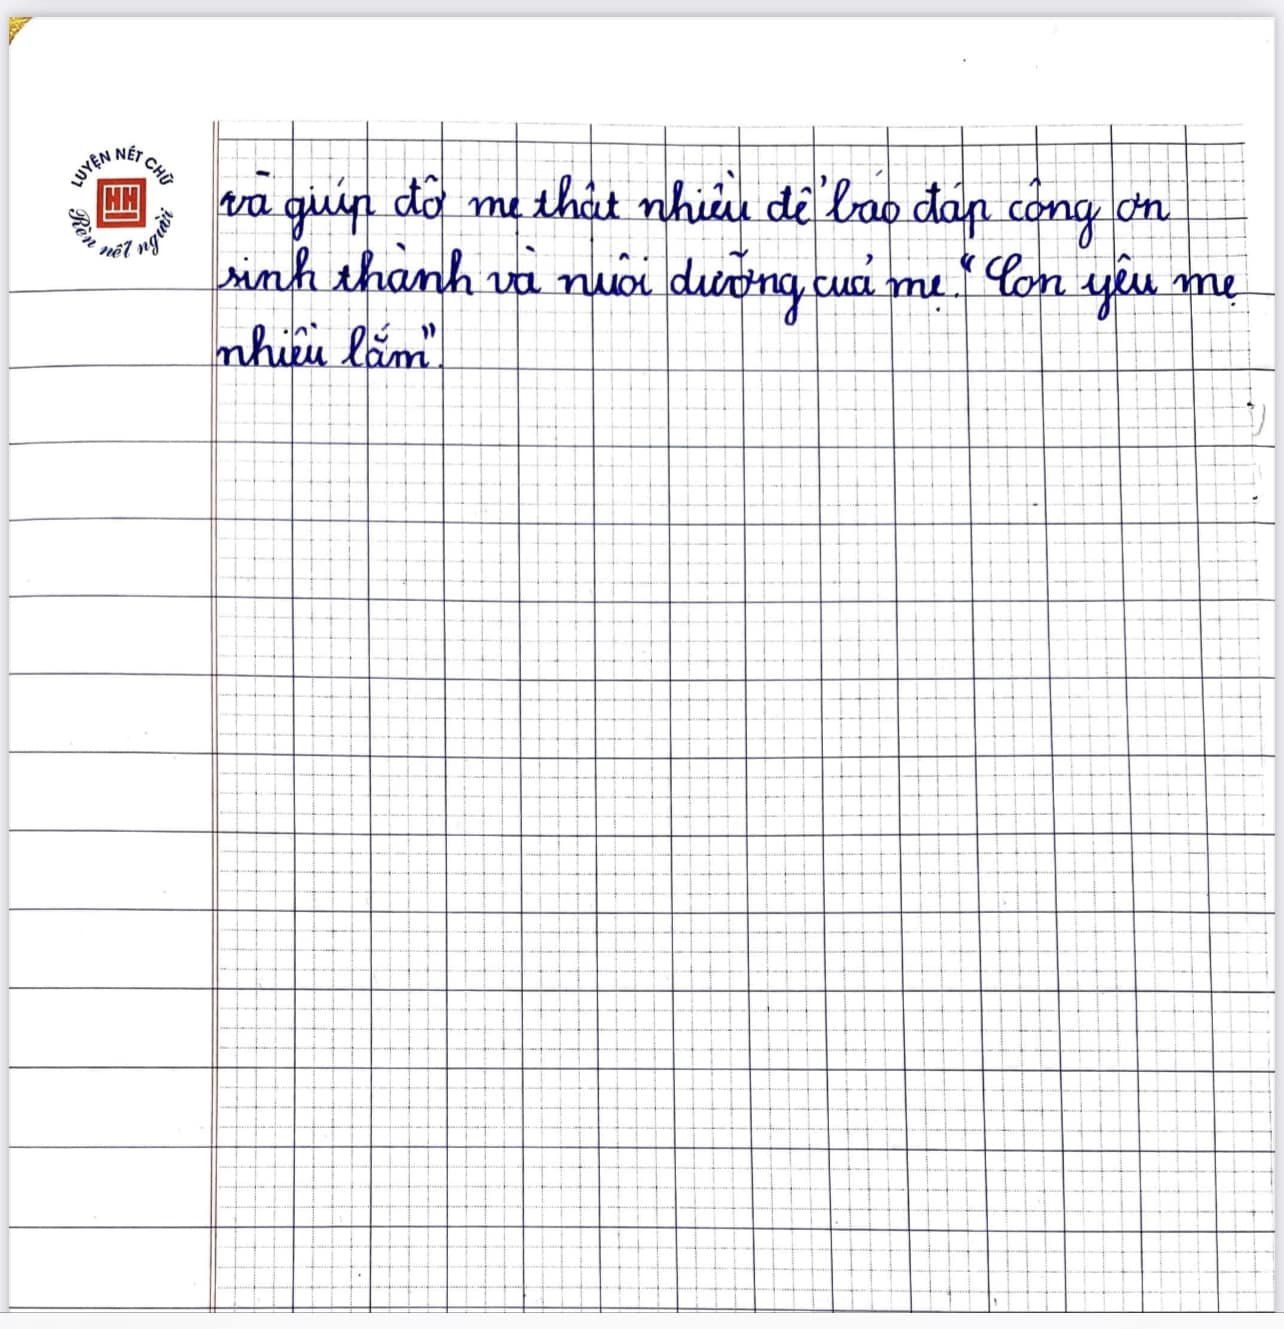 LUYỆN NÉT CHỮ
HH
Rèn nết người
và giúp đỡ mẹ thật nhiều để báo đáp công ơn
sinh thành và nuôi dưỡng của mẹ. “Con yêu mẹ
nhiều lắm”.